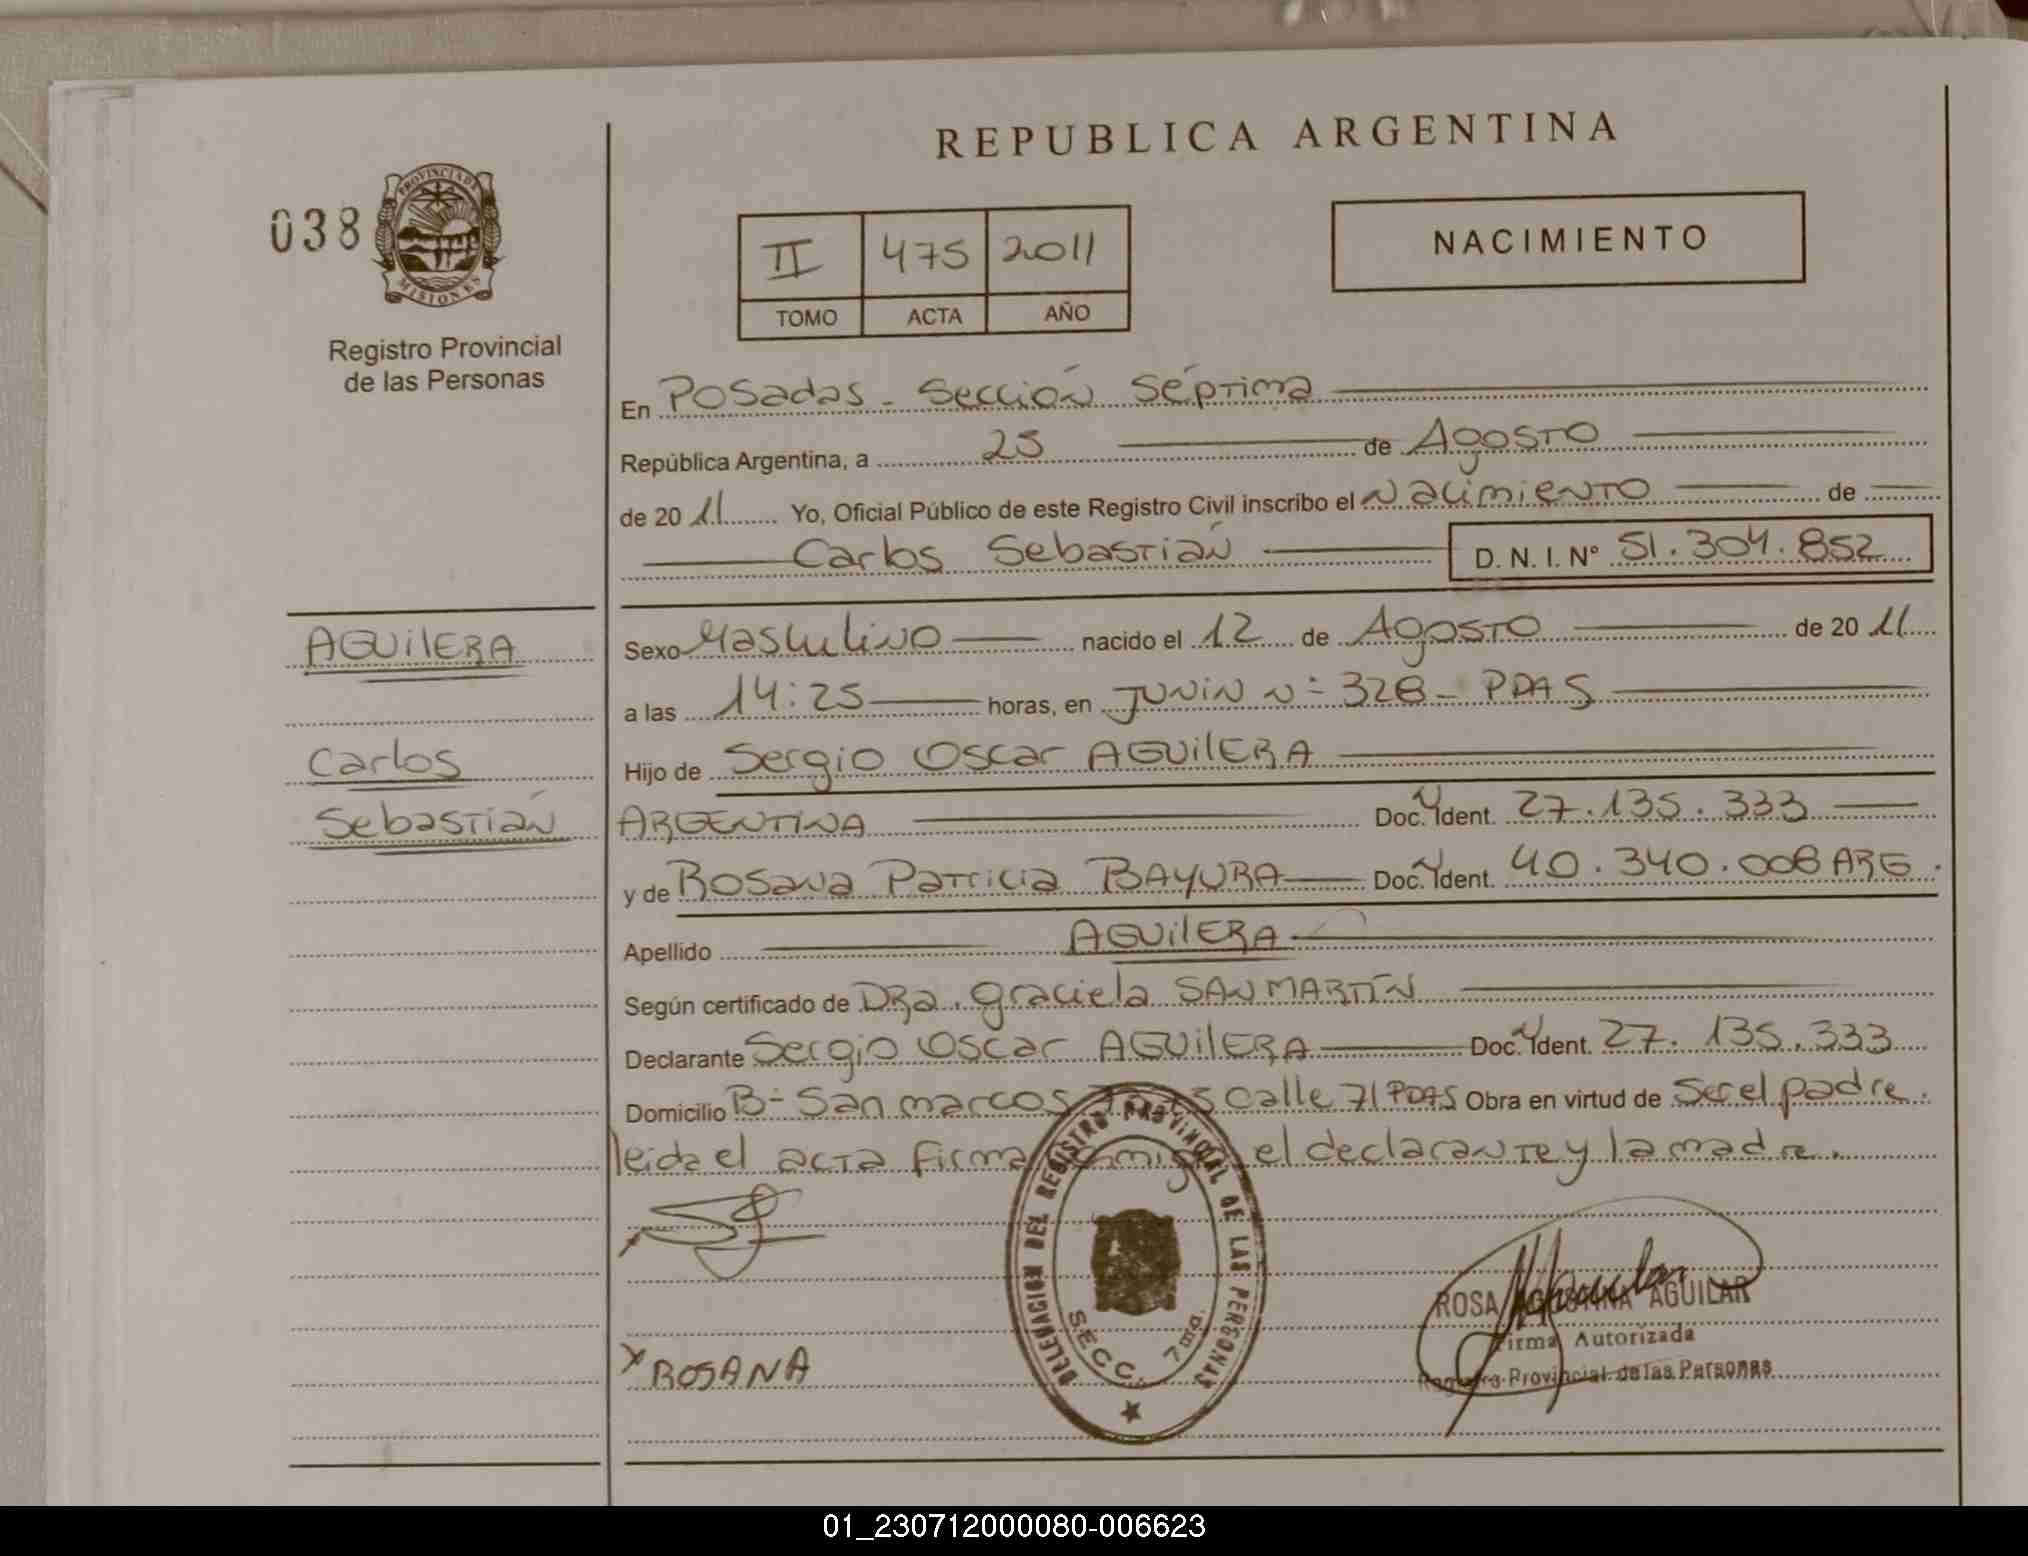 REPUBLICA ARGENTINA
038
PROVINCIA DE MISIONES
Registro Provincial
de las Personas
II 475 2011
TOMO ACTA AÑO
NACIMIENTO
En Posadas - Sección Séptima
República Argentina, a 25 de Agosto
de 2011 Yo, Oficial Público de este Registro Civil inscribo el Nacimiento de
Carlos Sebastián D. N. I. Nº 51.304.852
AGUILERA
Carlos
Sebastián
Sexo Masculino nacido el 12 de Agosto de 2011
a las 14:25 horas, en JUNIN Nº 328 - PDAS
Hijo de Sergio Oscar AGUILERA
ARGENTINA Doc. Ident. 27.135.333
y de Rosana Patricia BAYURA Doc. Ident. 40.340.008 ARG.
Apellido AGUILERA
Según certificado de DRa. Graciela SAN MARTÍN
Declarante Sergio Oscar AGUILERA Doc. Ident. 27.135.333
Domicilio Bº San marcos calle 71 PDAS Obra en virtud de Ser el padre.
leida el acta firma conmigo el declarante y la madre.
DELEGACION DEL REGISTRO PROVINCIAL DE LAS PERSONAS
SECC. 7ma.
ROSA AGUSTINA AGUILAR
Firma Autorizada
Registro Provincial de las Personas
x ROSANA
01_230712000080-006623